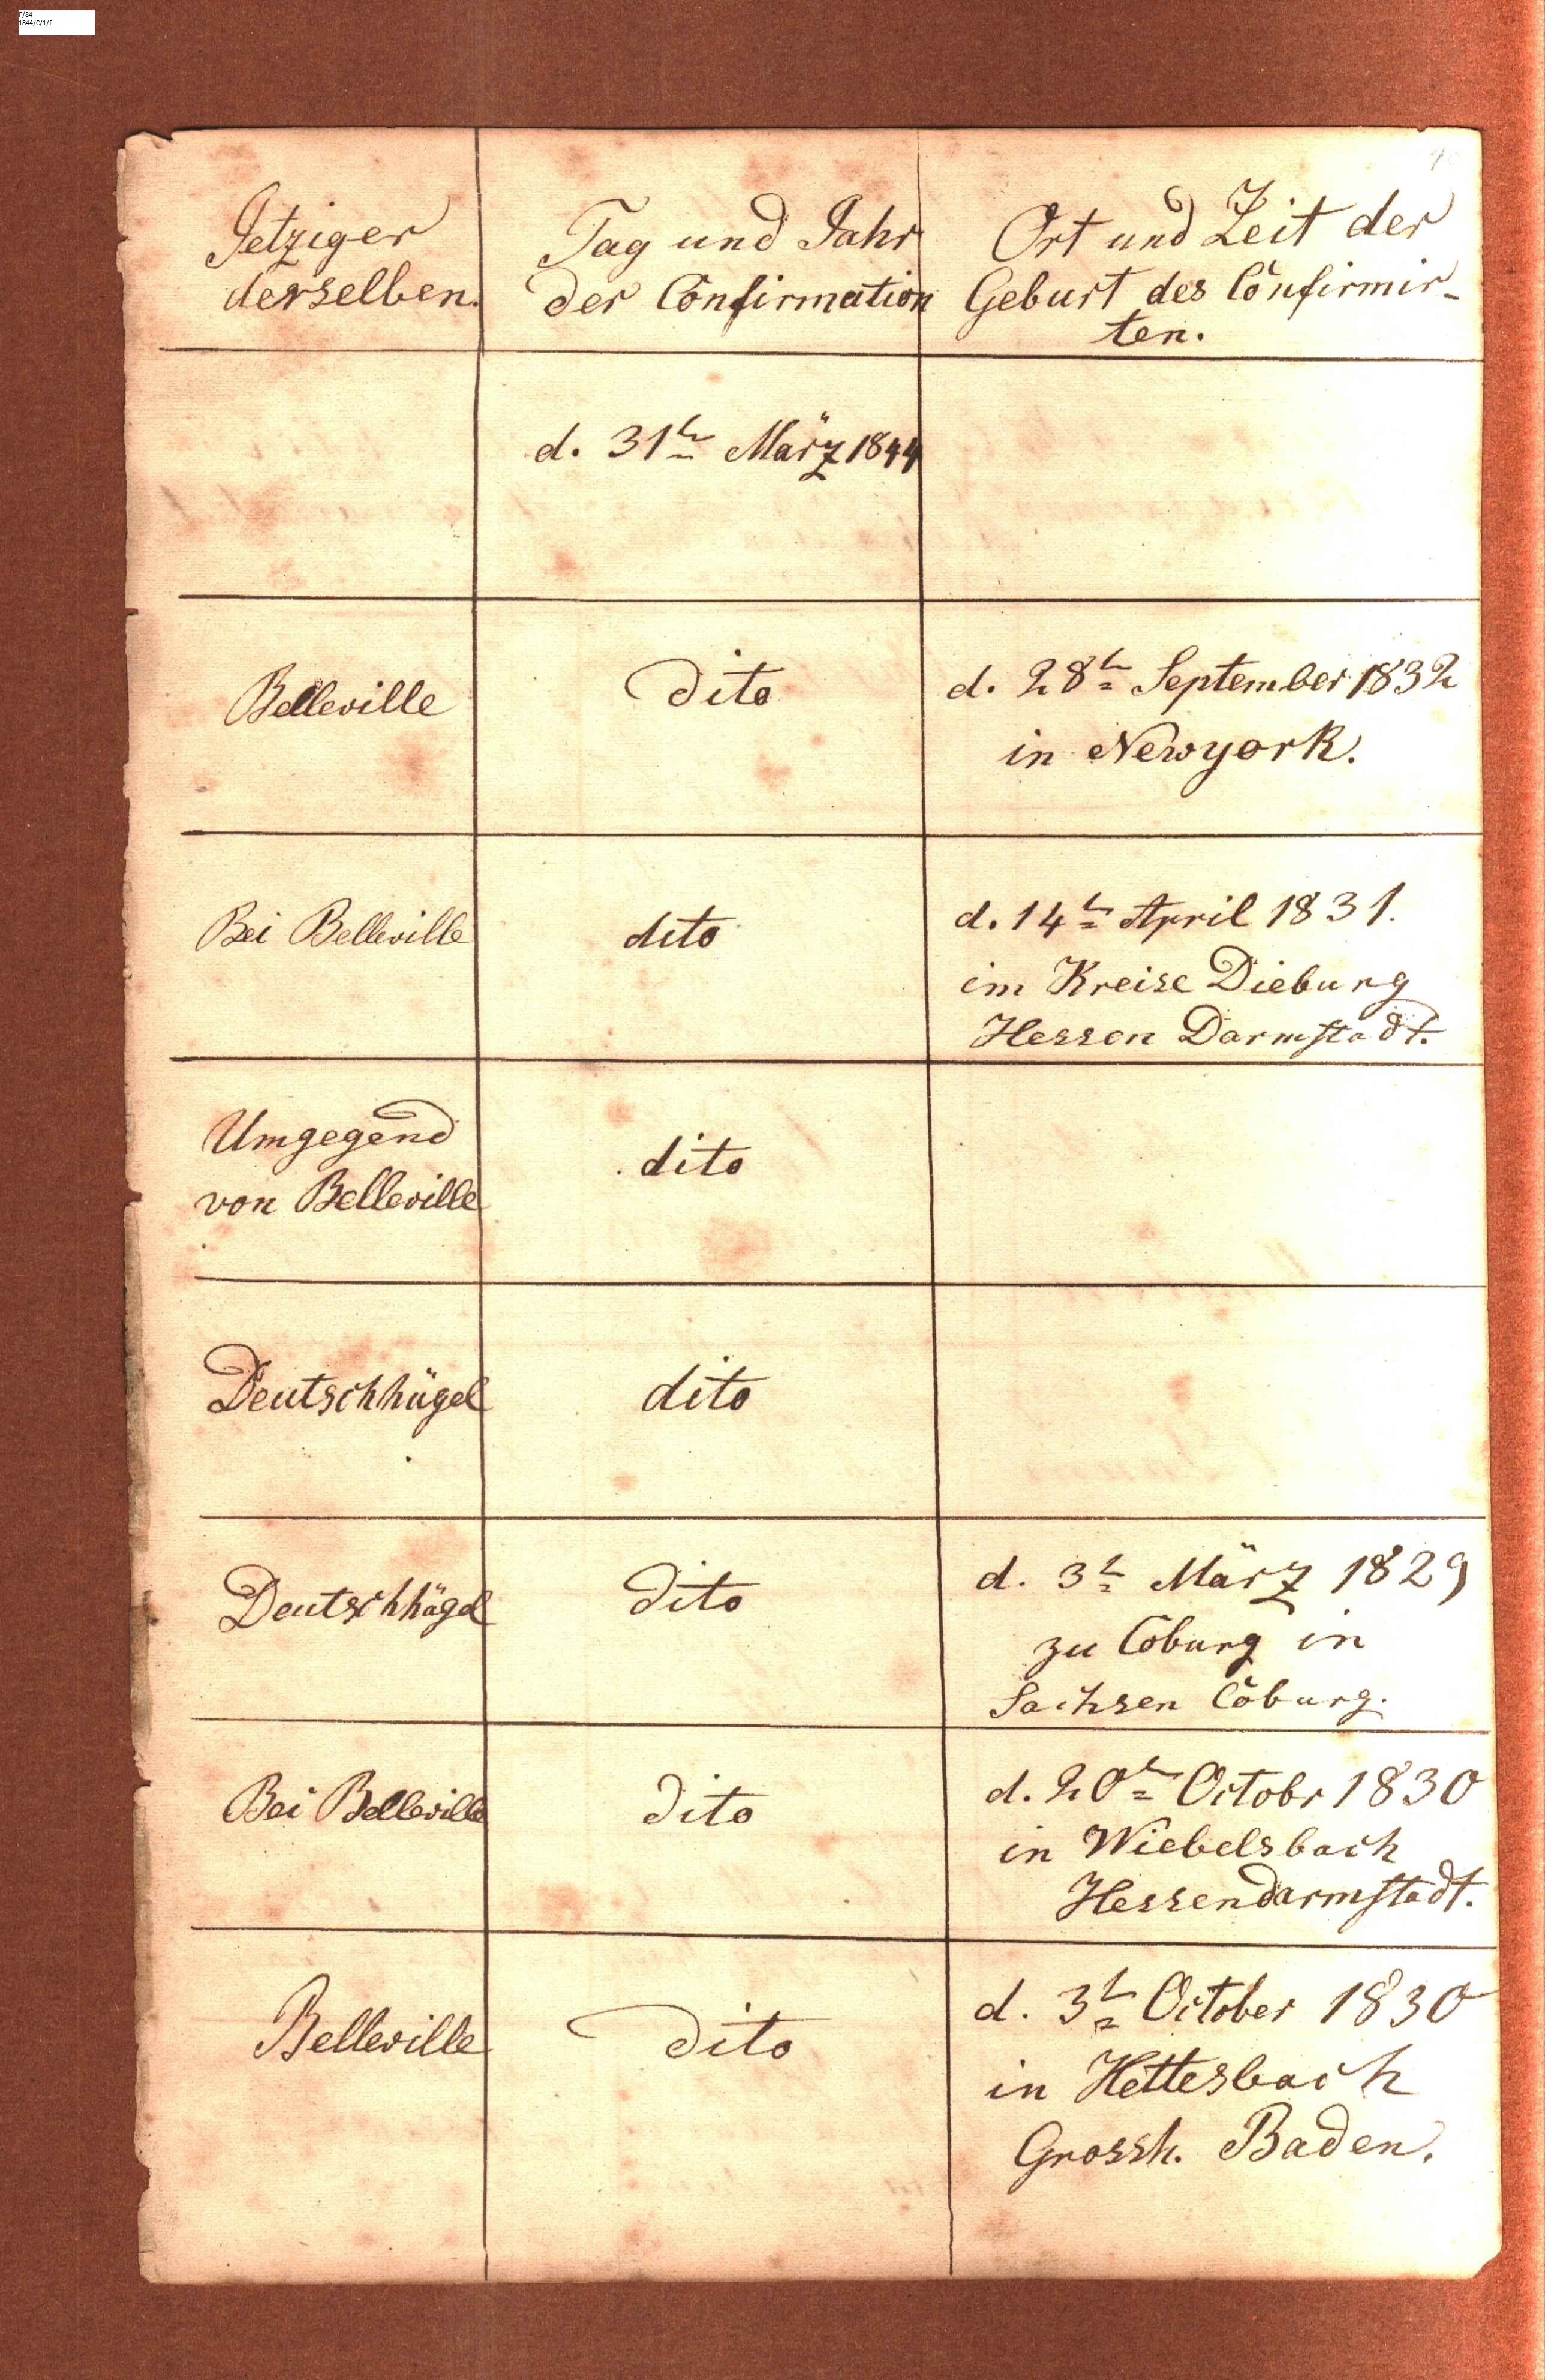 F/84
1844/C/1/f
Jetziger
derselben.
Tag und Jahr
der Confirmation
Ort und Zeit der
Geburt des Confirmir-
ten.
d. 31t März 1844
Belleville
dito
d. 28t September 1832
in Newyork.
Bei Belleville
dito
d. 14t April 1831.
im Kreise Dieburg
Hessen Darmstadt.
Umgegend
von Belleville
dito
Deutschhügel
dito
Deutschhügel
dito
d. 3t März 1829
zu Coburg in
Sachsen Coburg.
Bei Belleville
dito
d. 20t Octobr 1830
in Wiebelsbach
Hessendarmstadt.
Belleville
dito
d. 3t October 1830
in Hettesbach
Grossh. Baden.